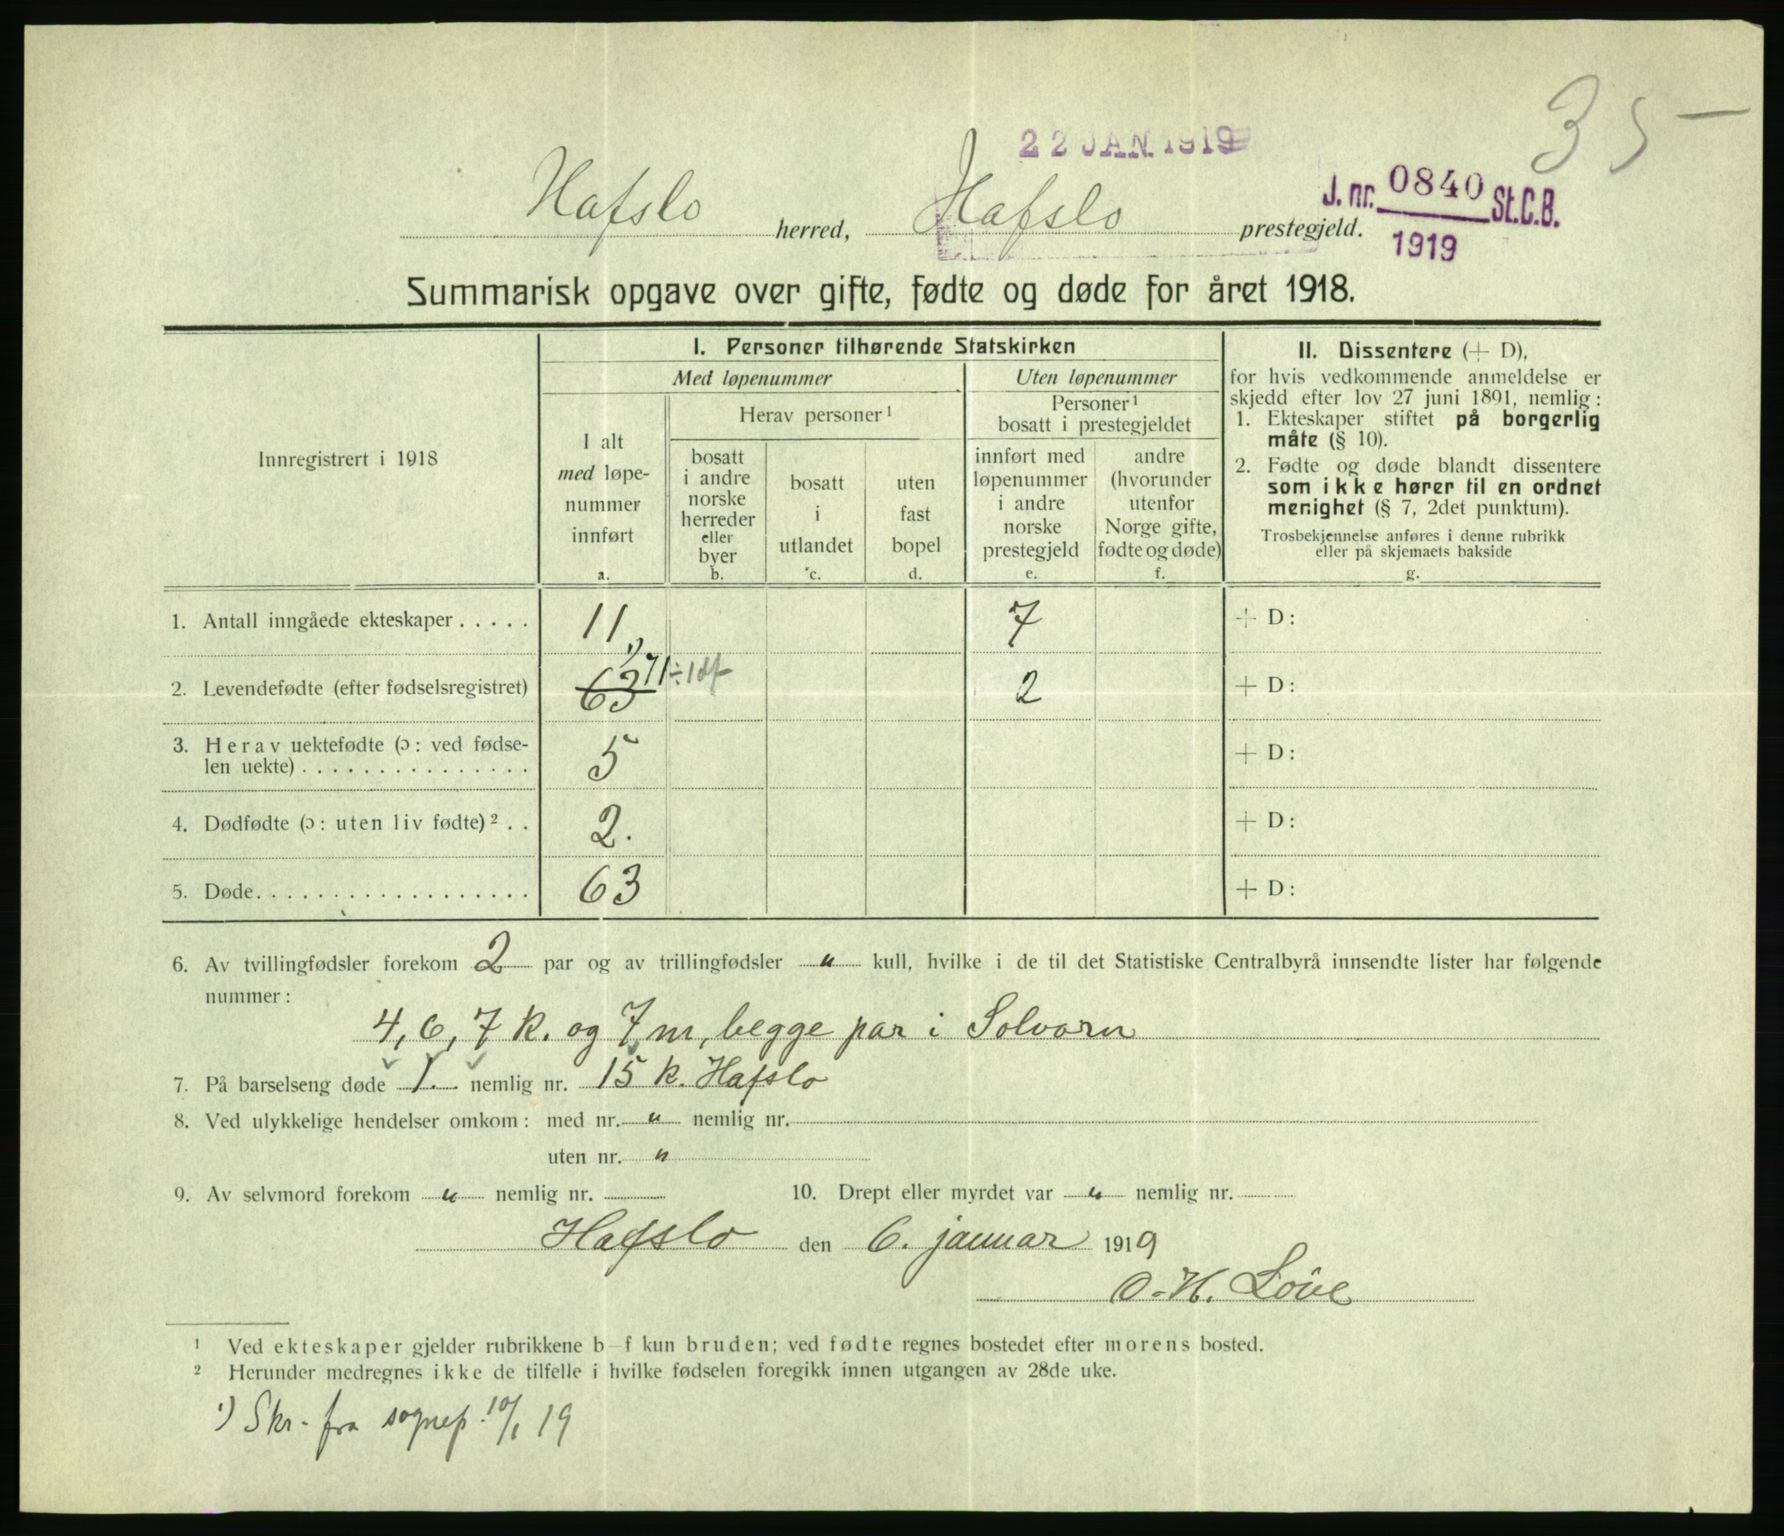 35 —
22 JAN. 1919
J. nr. 0840 St.C.B.
1919
Hafslo herred, Hafslo prestegjeld.
Summarisk opgave over gifte, fødte og døde for året 1918.
Innregistrert i 1918
I. Personer tilhørende Statskirken
Med løpenummer
Uten løpenummer
I alt
med løpe-
nummer
innført
a.
Herav personer¹
bosatt
i andre
norske
herreder
eller
byer
b.
bosatt
i
utlandet
c.
uten
fast
bopel
d.
Personer¹
bosatt i prestegjeldet
innført med
løpenummer
i andre
norske
prestegjeld
e.
andre
(hvorunder
utenfor
Norge gifte,
fødte og døde)
f.
II. Dissentere (+ D),
for hvis vedkommende anmeldelse er
skjedd efter lov 27 juni 1891, nemlig:
1. Ekteskaper stiftet på borgerlig
måte (§ 10).
2. Fødte og døde blandt dissentere
som ikke hører til en ordnet
menighet (§ 7, 2det punktum).
Trosbekjennelse anføres i denne rubrikk
eller på skjemaets bakside
g.
1. Antall inngåede ekteskaper..... 11 7 + D:
2. Levendefødte (efter fødselsregistret) 63 ¹) 71 ÷ 1 df 2 + D:
3. Herav uektefødte (ɔ: ved fødse-
len uekte)............... 5 + D:
4. Dødfødte (ɔ: uten liv fødte)².. 2. + D:
5. Døde.................. 63 + D:
6. Av tvillingfødsler forekom 2 par og av trillingfødsler " kull, hvilke i de til det Statistiske Centralbyrå innsendte lister har følgende
nummer:
4, 6, 7 k. og 7 m, begge par i Solvorn
7. På barselseng døde 1. nemlig nr. 15 k. Hafslo
8. Ved ulykkelige hendelser omkom: med nr. " nemlig nr.
uten nr. "
9. Av selvmord forekom " nemlig nr. 10. Drept eller myrdet var " nemlig nr.
Hafslo den 6. januar 1919
O. H. Löve
¹ Ved ekteskaper gjelder rubrikkene b–f kun bruden; ved fødte regnes bostedet efter morens bosted.
² Herunder medregnes ikke de tilfelle i hvilke fødselen foregikk innen utgangen av 28de uke.
¹) Skr. fra sognep. 10/1 19